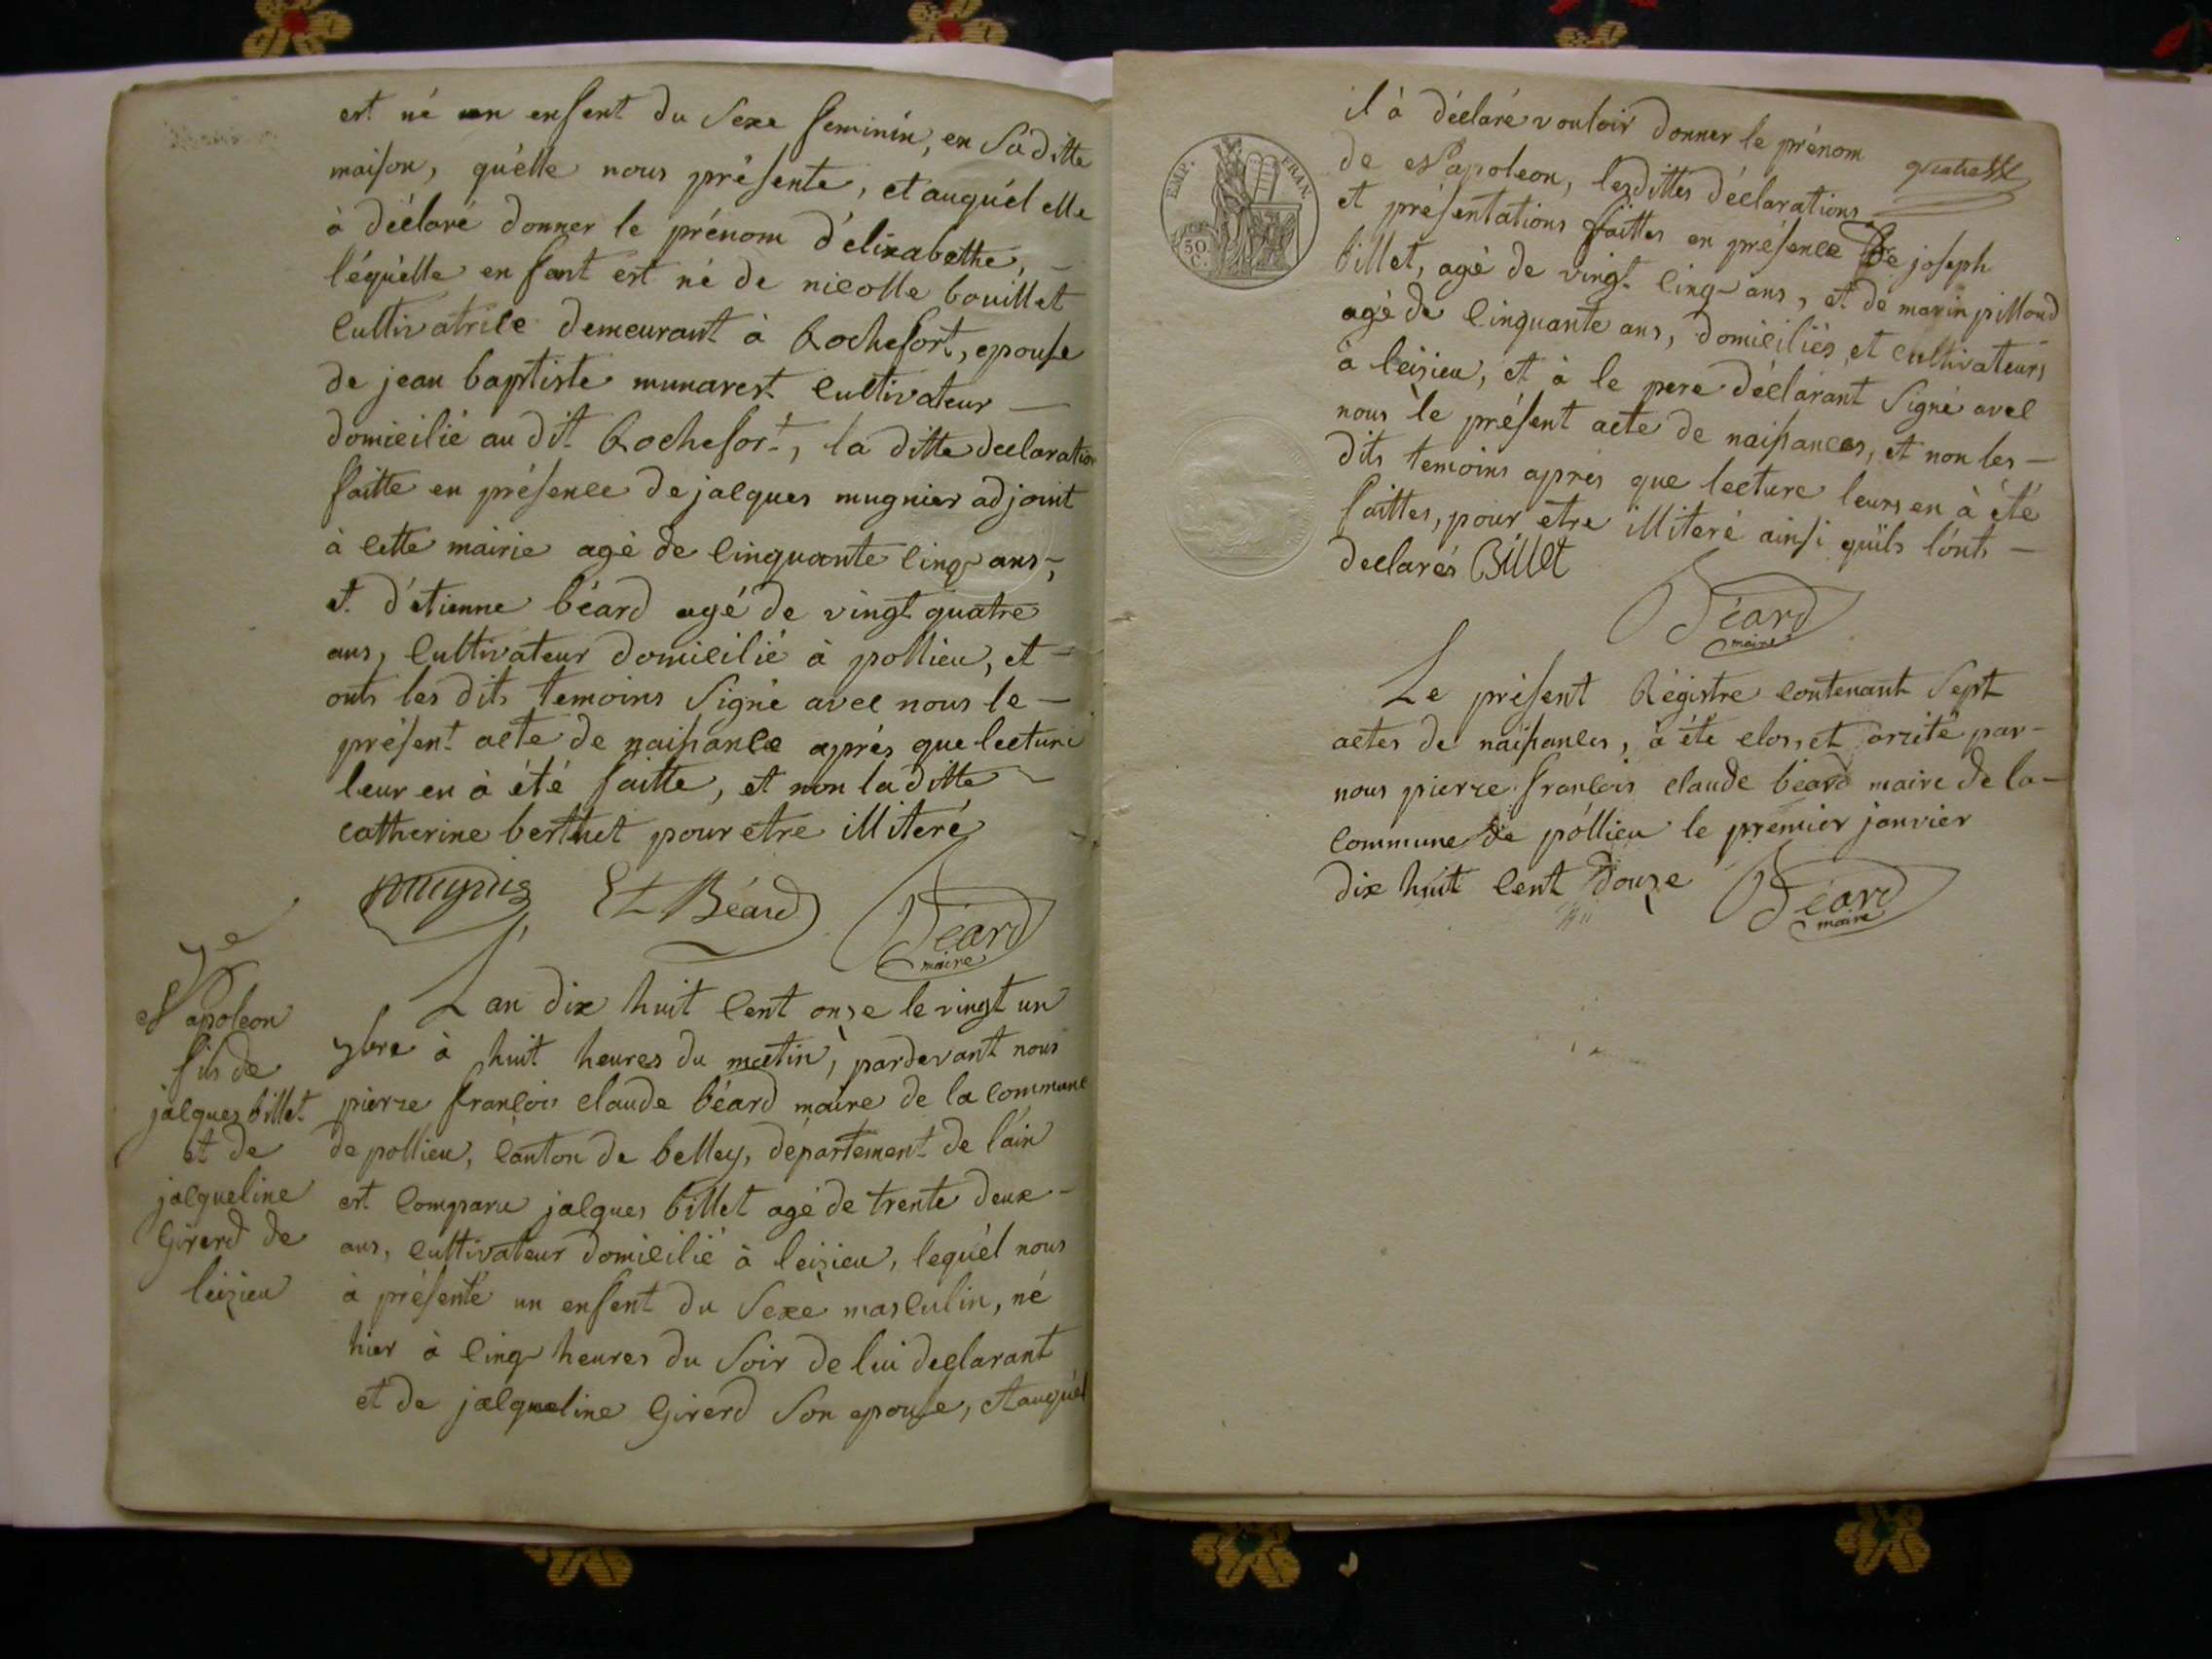 est né un enfent du Sexe feminin, en Saditte
maison, qu'elle nous présente, et auquél elle
à déclaré donner le prénom d'elizabethe, —
léquelle enfent est né de nicolle bouillet
Cultivatrice demeurant à Rochefort, epouse
de jean baptiste munarest Cultivateur —
domicilié au dit Rochefort, la ditte declaration
faitte en présence de jacques mugnier adjoint
à cette mairie agé de Cinquante Cinq ans,
et d'étienne béard agé de vingt quatre
ans, Cultivateur domicilié à pollieu, et —
onts les dits temoins Signé avec nous le —
présent acte de naissance aprés que lecture
leur en à été faitte, et non la ditte —
catherine berthet pour etre illiteré
Et Béard
Béard
maire
7e
Napoleon
fils de
jacques billet
et de
jacqueline
Girerd de
leizieu
L'an dix huit Cent onze le vingt un
7bre à huit heures du matin, pardevant nous
pierre françois claude béard maire de la commune
de pollieu, canton de belley, département de l'ain
est Comparu jacques billet agé de trente deux —
ans, cultivateur domicilié à leizieu, lequél nous
à présenté un enfent du Sexe masculin, né
hier à Cinq heures du Soir de lui declarant
et de jacqueline Girerd Son epouse, et auquél
EMP. FRAN.
50
C.
il à déclaré vouloir donner le prénom
de Napoleon, lesdittes déclarations
et présentations faittes en présence de joseph
billet, agé de vingt Cinq ans, et de marin pilloud
agé de Cinquante ans, domiciliés et cultivateurs
à leizieu, et à le pere déclarant Signé avec
nous le présent acte de naissances, et non les —
dits temoins aprés que lecture leurs en à été
faittes, pour etre illiteré ainsi qu'ils l'onts —
declarés Billet
Béard
maire
Le présent Régistre contenant Sept
actes de naissances, à été clos, et arrété par —
nous pierre françois claude béard maire de la —
commune de pollieu le premier janvier
dix huit Cent douze
Béard
maire